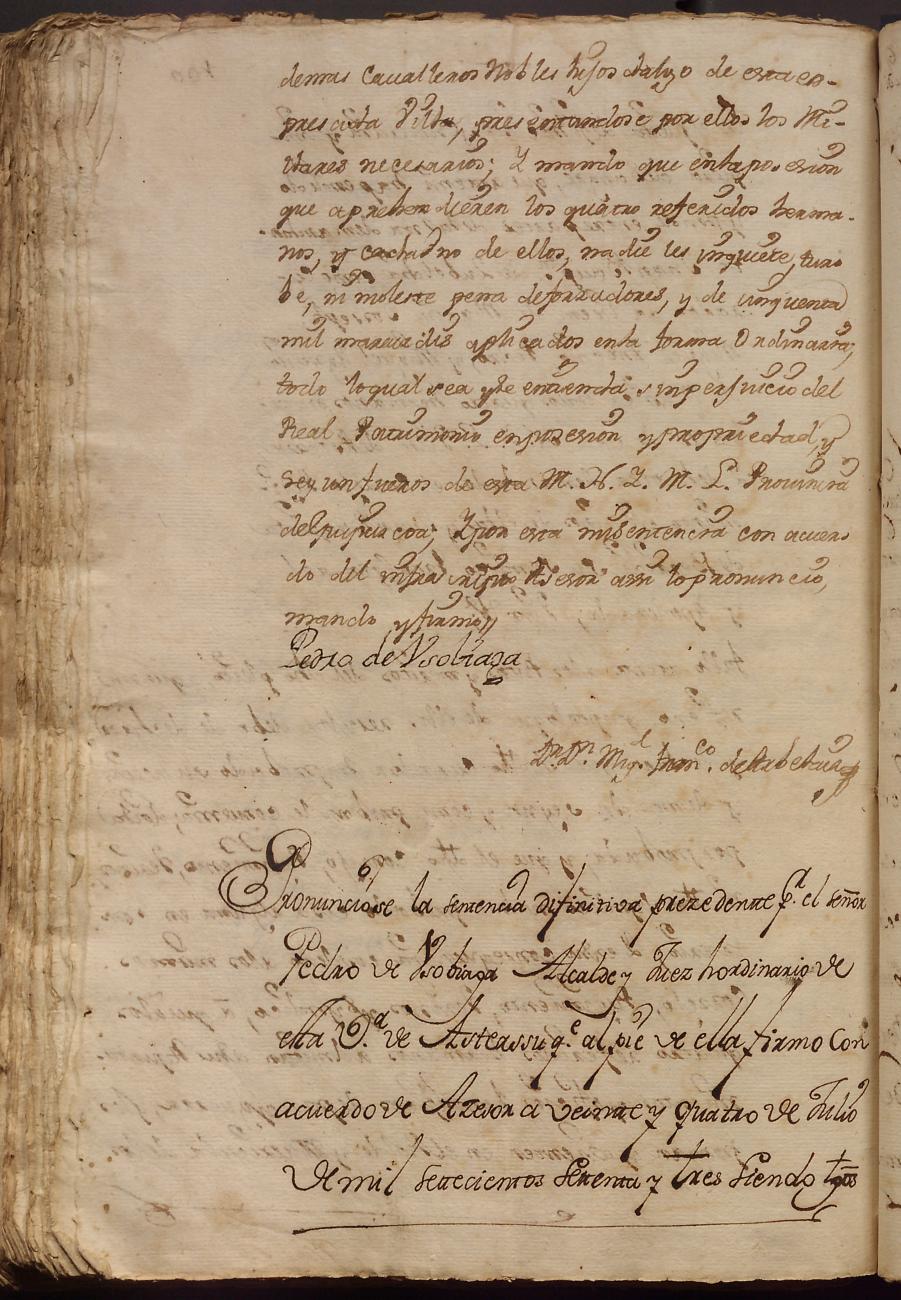 demas Cavalleros Nobles hijos dalgo de esta ex-
presada Villa, presentandose por ellos los Mi-
litares necesarios; Y mando que en la posesion
que aprehendieren los quatro referidos herma-
nos, y cada uno de ellos, nadie les inquiete, tur-
be, ni moleste pena de forzadores, y de cinquenta
mil maravedis aplicados en la forma Ordinaria;
todo lo qual sea y se entienda sin perjuicio del
Real Patrimonio en posesion y propriedad, y
segun fueros de esta M. N. Y. M. L. Provincia
de Guipuzcoa; Y por esta mi Sentencia con acuer-
do del infraescripto Asesor assi lo pronuncio,
mando y firmo
Pedro de Vsobiaga
Dr. Dn. Migl. Franco. de
Pronunciose la sentencia difinitiva prezedente pr. el señor
Pedro de Vsobiaga Alcalde y Juez hordinario de
esta Va. de Asteassu qe. al pie de ella firmo Con
acuerdo de Azesor a veinte y quatro de Julio
de mil settecientos settenta y tres siendo tgos